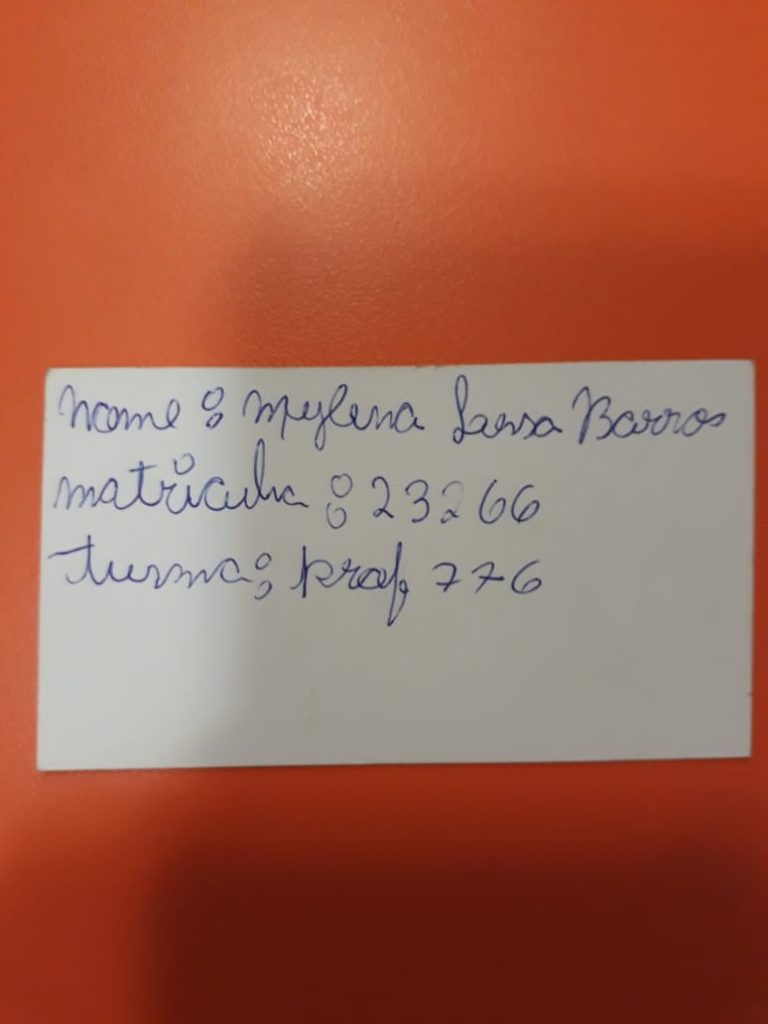 Nome: Mylena Barros
matricula: 23266
turma: prof 776